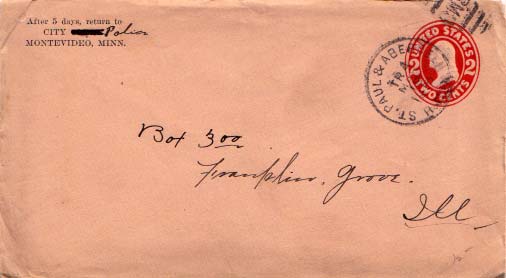 After 5 days, return to
CITY Police
MONTEVIDEO, MINN.
UNITED STATES
2 2
TWO CENTS
ST. PAUL & ABER
TR
Box 300
Franklin, Grove.
Ill